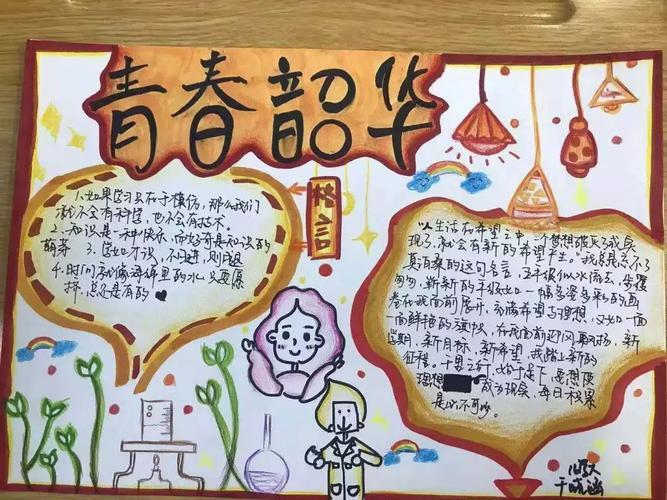 青春韶华
格言
1.如果学习只在于模仿，那么我们
就不会有科学，也不会有技术。
2.知识是一种快乐，而好奇是知识的
萌芽
3.学如才识，不日进，则日退
4.时间就像海绵里的水，只要愿
挤，总还是有的
人生活在希望之中一个梦想破灭或实
现了，就会有新的希望产生。"我总是忘不了
莫泊桑的这句名言，五年级似水流去，步履
匆匆，新新的年级如一幅多姿多彩的画
卷在我面前展开，充满希望与理想，又如一面
一面鲜艳的旗帜，在我面前迎风飘扬，新
学期，新目标，新希望，我踏上新的
征程。千里之行，始于足下，思想使
理想成为现实，每日积累
是必不可少。